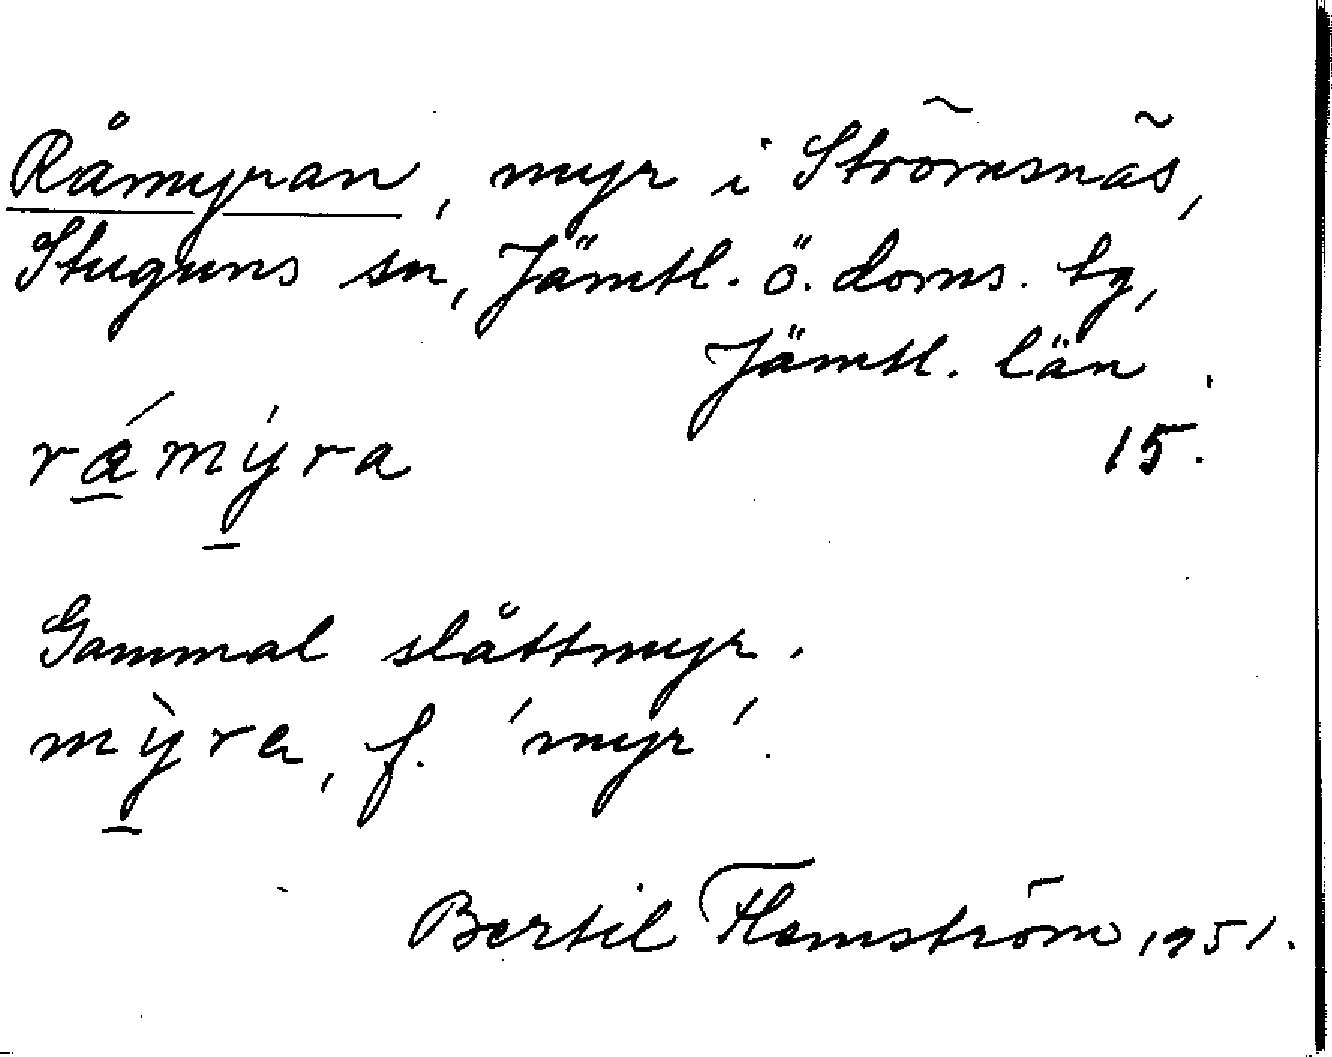 Råmyran, myr i Strömsnäs,
Stuguns sn, Jämtl. ö. doms. tg,
Jämtl. län.
rǽmýra 15.
Gammal slåttmyr.
mỳra, f. 'myr'.
Bertil Flemström 1951.